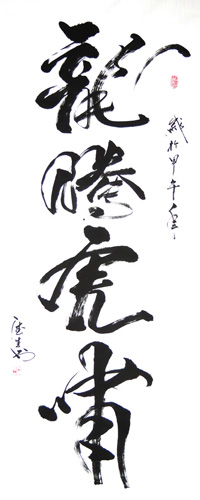 龍騰虎嘯
歲於甲午